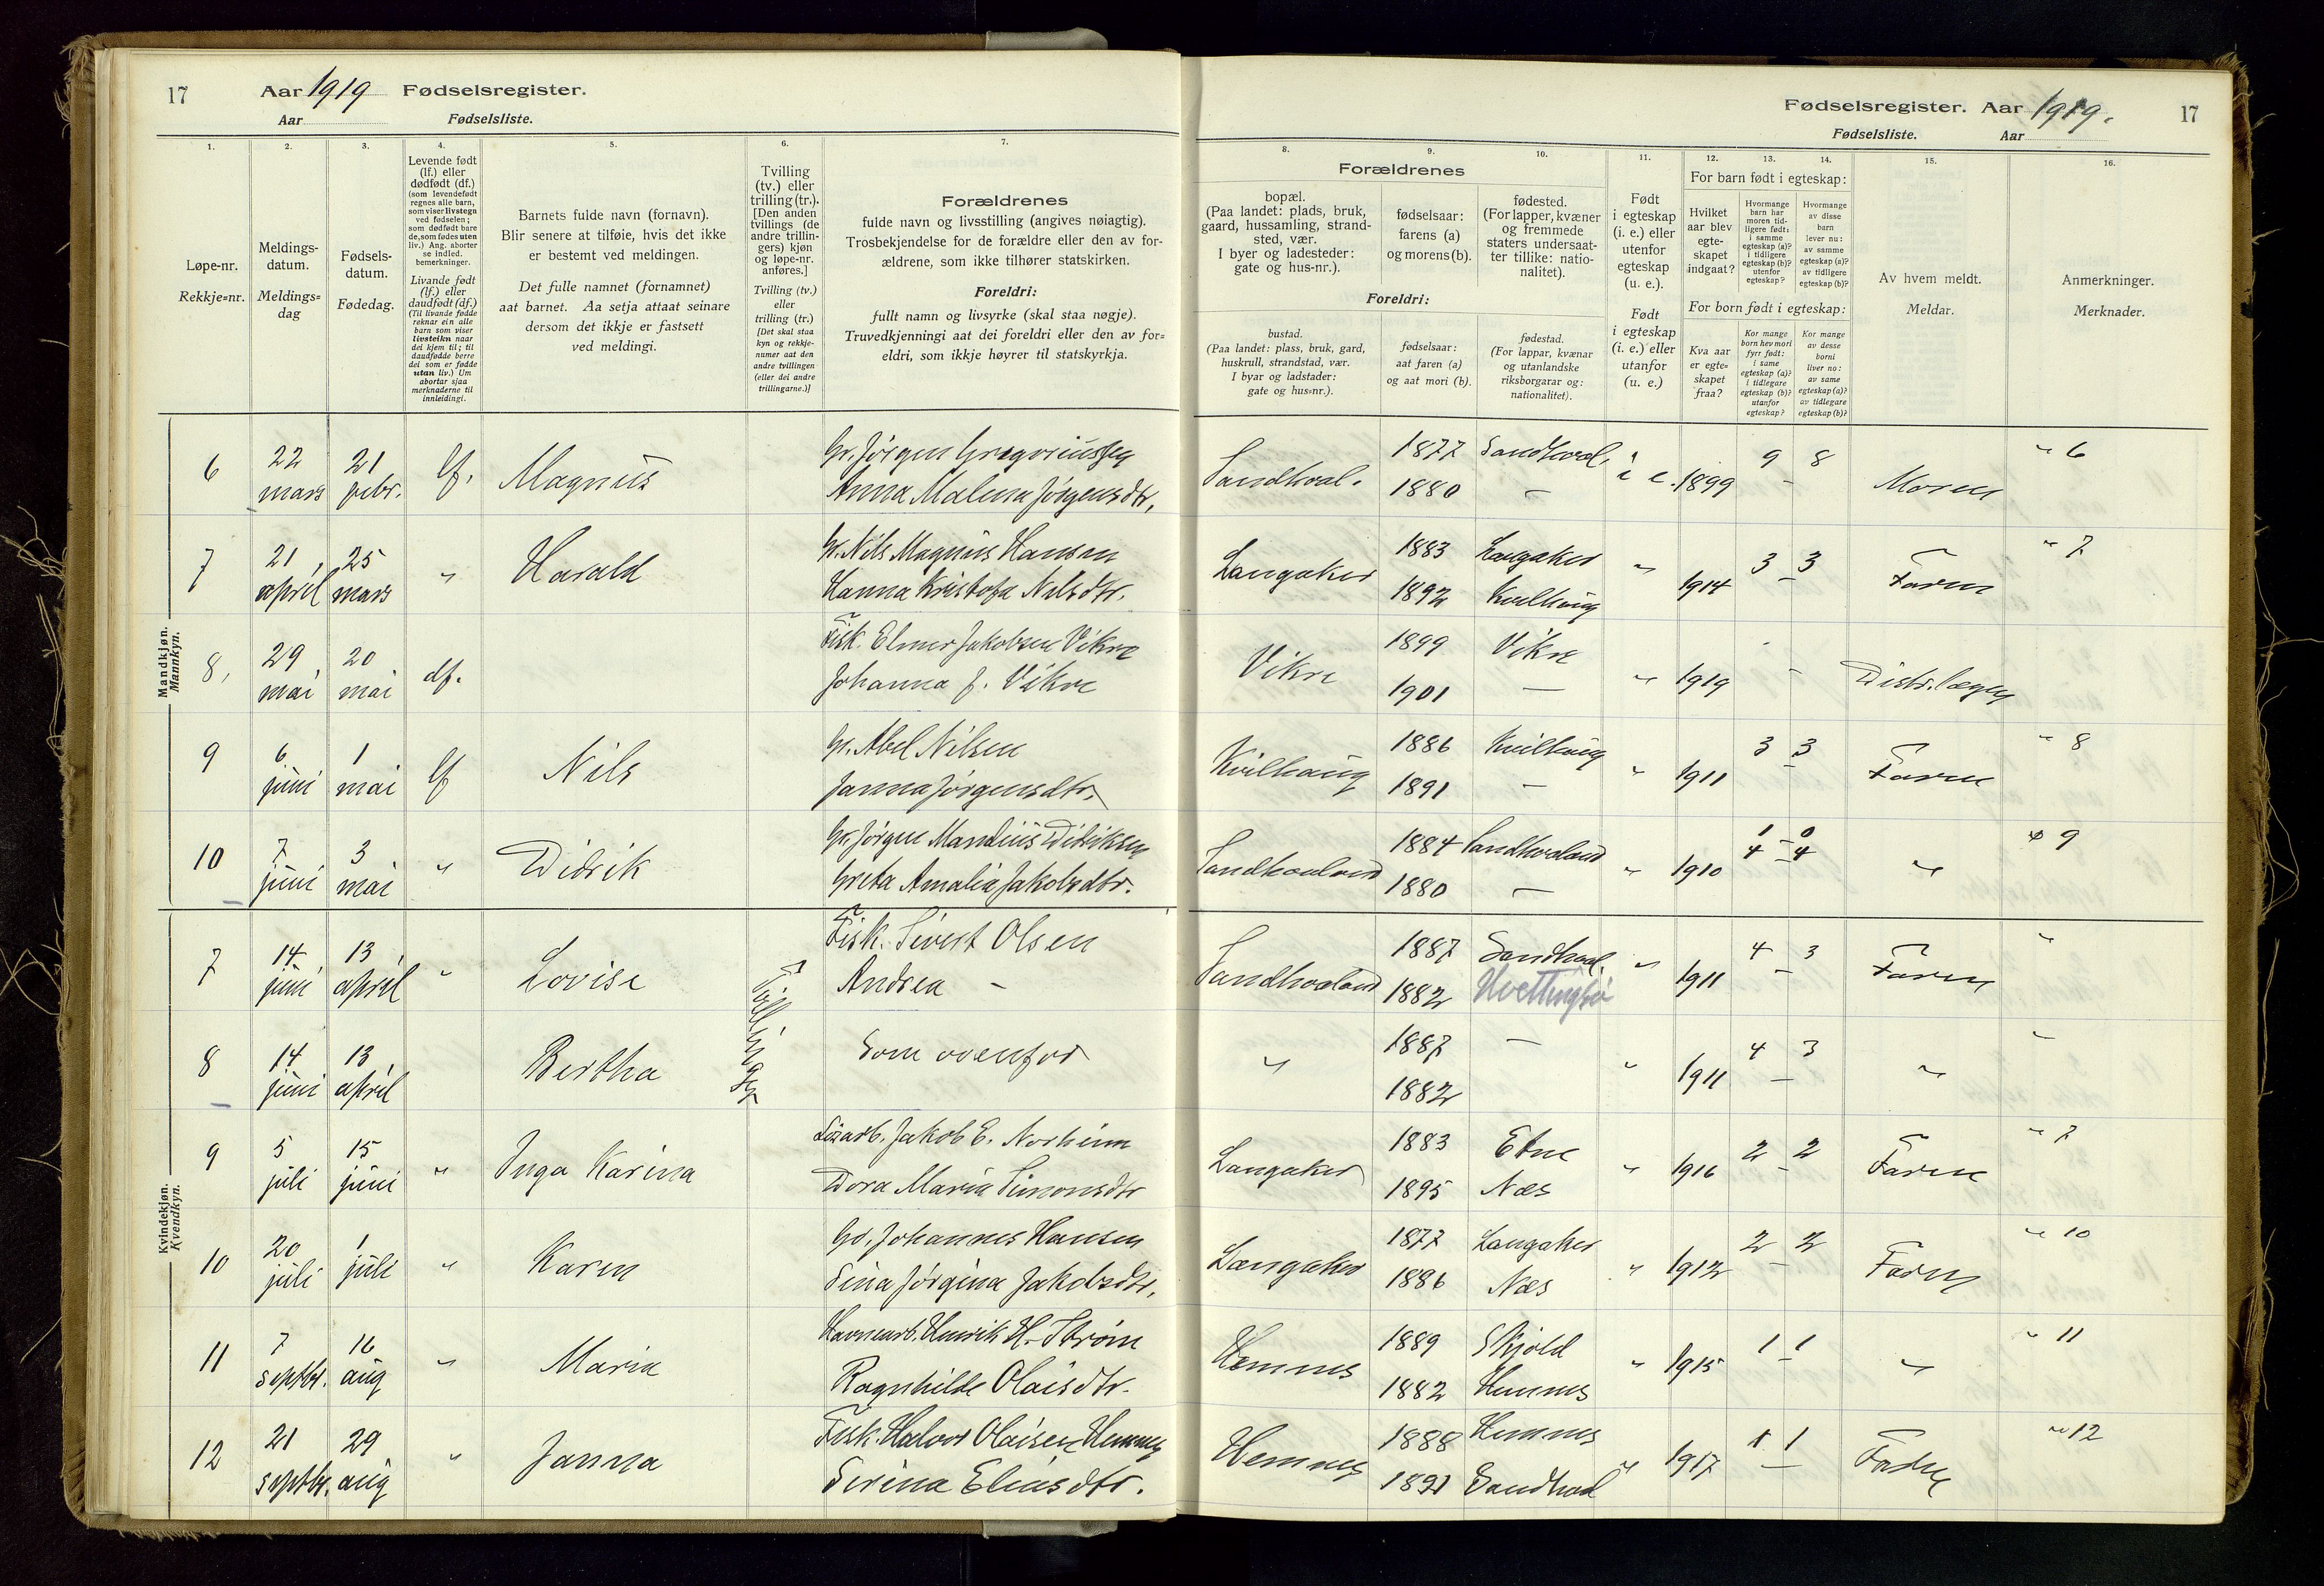 17 Aar 1919 Fødselsregister.
Aar Fødselsliste.
Fødselsregister. Aar 1919. 17
Fødselsliste. Aar
1. 2. 3. 4. 5. 6. 7. 8. 9. 10. 11. 12. 13. 14. 15. 16.
Løpe-nr.
Rekkje=nr.
Meldings-
datum.
Meldings=
dag
Fødsels-
datum.
Fødedag.
Levende født
(lf.) eller
dødfødt (df.)
(som levendefødt
regnes alle barn,
som viser livstegn
ved fødselen;
som dødfødt bare
de, som fødes uten
liv.) Ang. aborter
se indled.
bemerkninger.
Livande født
(lf.) eller
daudfødt (df.)
(Til livande fødde
reknar ein alle
barn som viser
livsteikn naar
dei kjem til; til
daudfødde berre
dei som er fødde
utan liv.) Um
abortar sjaa
merknaderne til
innleidingi.
Barnets fulde navn (fornavn).
Blir senere at tilføie, hvis det ikke
er bestemt ved meldingen.
Det fulle namnet (fornamnet)
aat barnet. Aa setja attaat seinare
dersom det ikkje er fastsett
ved meldingi.
Tvilling
(tv.) eller
trilling (tr.).
[Den anden
tvillings (de
andre trillin-
gers) kjøn
og løpe-nr.
anføres.]
Tvilling (tv.)
eller
trilling (tr.)
[Det skal staa
kyn og rekkje-
numer aat den
andre tvillingen
(eller dei andre
trillingarne.)]
Forældrenes
fulde navn og livsstilling (angives nøiagtig).
Trosbekjendelse for de forældre eller den av for-
ældrene, som ikke tilhører statskirken.
Foreldri:
fullt namn og livsyrke (skal staa nøgje).
Truvedkjenningi aat dei foreldri eller den av for=
eldri, som ikkje høyrer til statskyrkja.
Forældrenes
bopæl.
(Paa landet: plads, bruk,
gaard, hussamling, strand-
sted, vær.
I byer og ladesteder:
gate og hus-nr.).
Foreldri:
bustad.
(Paa landet: plass, bruk, gard,
huskrull, strandstad, vær.
I byar og ladstader:
gate og hus=nr.).
fødselsaar:
farens (a)
og morens (b).
fødselsaar:
aat faren (a)
og aat mori (b).
fødested.
(For lapper, kvæner
og fremmede
staters undersaat-
ter tillike: natio-
nalitet).
fødestad.
(For lappar, kvænar
og utanlandske
riksborgarar og:
nationalitet).
Født
i egteskap
(i. e.) eller
utenfor
egteskap
(u. e.).
Født
i egteskap
(i. e.) eller
utanfor
(u. e.)
For barn født i egteskap:
Hvilket
aar blev
egte-
skapet
indgaat?
Hvormange
barn har
moren tid-
ligere født:
i samme
egteskap (a)?
i tidligere
egteskap (b)?
utenfor
egteskap?
Hvormange
av disse
barn
lever nu:
av samme
egteskap (a)?
av tidligere
egteskap (b)?
For born født i egteskap:
Kva aar
er egte=
skapet
fraa?
Kor mange
born hev mori
fyrr født:
i same
egteskap (a)?
i tidlegare
egteskap (b)?
utanfor
egteskap?
Kor mange
av desse
borni
liver no:
av same
egteskap (a)?
av tidlegare
egteskap (b)?
Av hvem meldt.
Meldar.
Anmerkninger.
Merknader.
Mandkjøn.
Mannkyn.
6 22 mars 21 febr. lf. Magnus Gr. Jörgen Gregoriussen 1877 Sandhval. i e. 1899 9 8 Moren " 6
Anna Malena Jörgensdtr. Sandhval. 1880 —
7 21 april 25 mars " Harald Gr. Nils Magnus Hansen Langaker 1883 Langaker " 1914 3 3 Faren " 7
Hanna Kristofa Nilsdtr. 1892 Kvilhaug
8, 29 mai 20 mai df. Fisk. Elmer Jakobsen Vikre Vikre 1899 Vikre " 1919 - Distr.lægen
Johanna J. Vikre 1901 —
9 6 juni 1 mai lf Nils Gr. Abel Nilsen Kvilhaug 1886 Kvilhaug " 1911 3 3 Faren " 8
Janna Jörgensdtr. 1891 —
10 7 juni 3 mai " Didrik Gr. Jörgen Mandius Didriksen Sandhvaland 1884 Sandhvaland " 1910 1 0 " 9
Greta Amalia Jakobsdtr. 1880 — 4 4
Kvindekjøn.
Kvendkyn.
7 14 juni 13 april " Lovise Tvillinger Fisk. Sivert Olsen Sandhvaland 1887 Sandhval. " 1911 4 3 Faren "
Andrea - 1882 Hvettingsö
8 14 juni 13 april Bertha Som ovenfor " 1887 — " 1911 4 3 " "
1882
9 5 juli 15 juni " Inga Karina Jakob E. Norheim Langaker 1883 Etne " 1916 2 2 Faren " 7
Dora Maria Simonsdtr 1895 Næs
10 20 juli 1 juli " Karen Gr. Johannes Hansen Langaker 1877 Langaker " 1912 2 2 Faren " 10
Sina Jörgina Jakobsdtr. 1886 Næs
11 7 septbr. 16 aug " Maria Havnearb. Henrik H. Ström Hemnes 1889 Skjold " 1915 1 1 " " 11
Ragnhilde Olaisdtr. 1882 Hemnes
12 21 septbr. 29 aug " Janna Fisk. Halvor Olaisen Hemnes Hemnes 1888 Hemnes " 1917 1 1 Faren " 12
Serina Eliasdtr. 1891 Sandhval